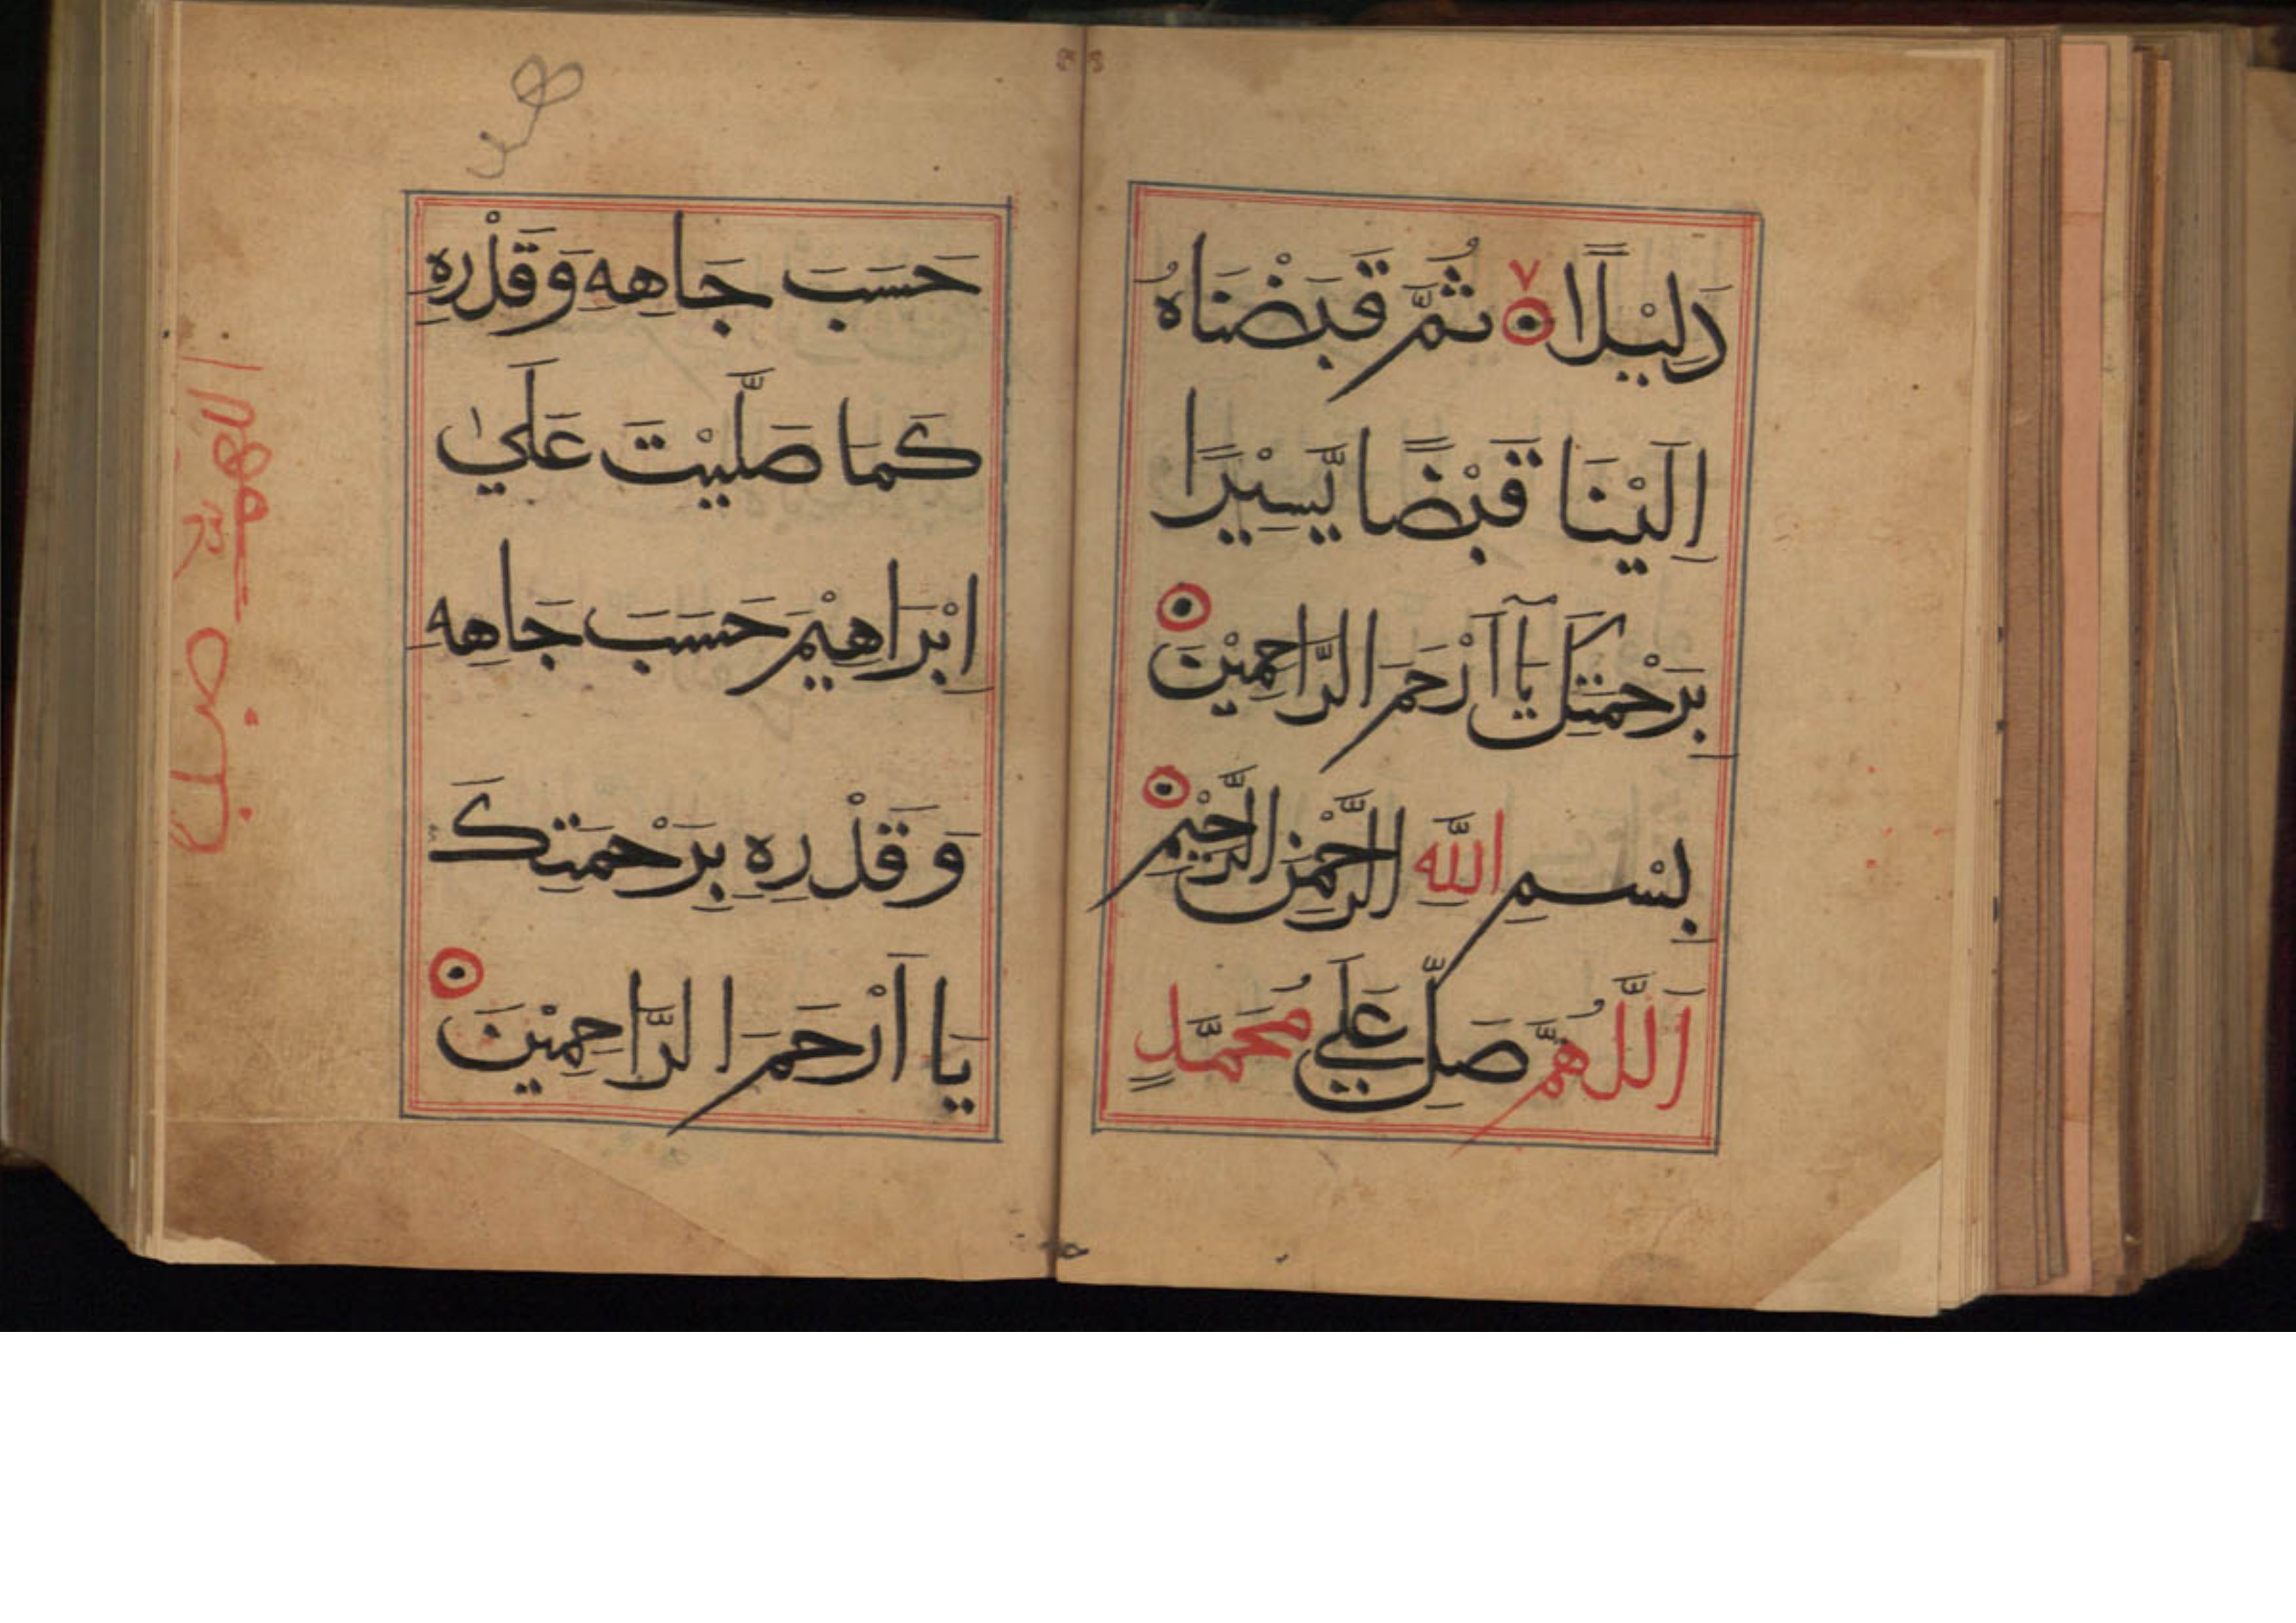 دَلِيْلًا ۝ ثُمَّ قَبَضْنَاهُ
اِلَيْنَا قَبْضًا يَّسِيْرًا
بِرَحْمَتِكَ يَآ اَرْحَمَ الرَّاحِمِيْنَ
بِسْمِ اللّٰهِ الرَّحْمٰنِ الرَّحِيْمِ
اَللّٰهُمَّ صَلِّ عَلَي مُحَمَّدٍ
حَسَبَ جَاهِهِ وَقَدْرِهِ
كَمَا صَلَّيْتَ عَلَيٰ
اِبْرَاهِيْمَ حَسَبَ جَاهِهِ
وَقَدْرِهِ بِرَحْمَتِكَ
يَا اَرْحَمَ الرَّاحِمِيْنَ